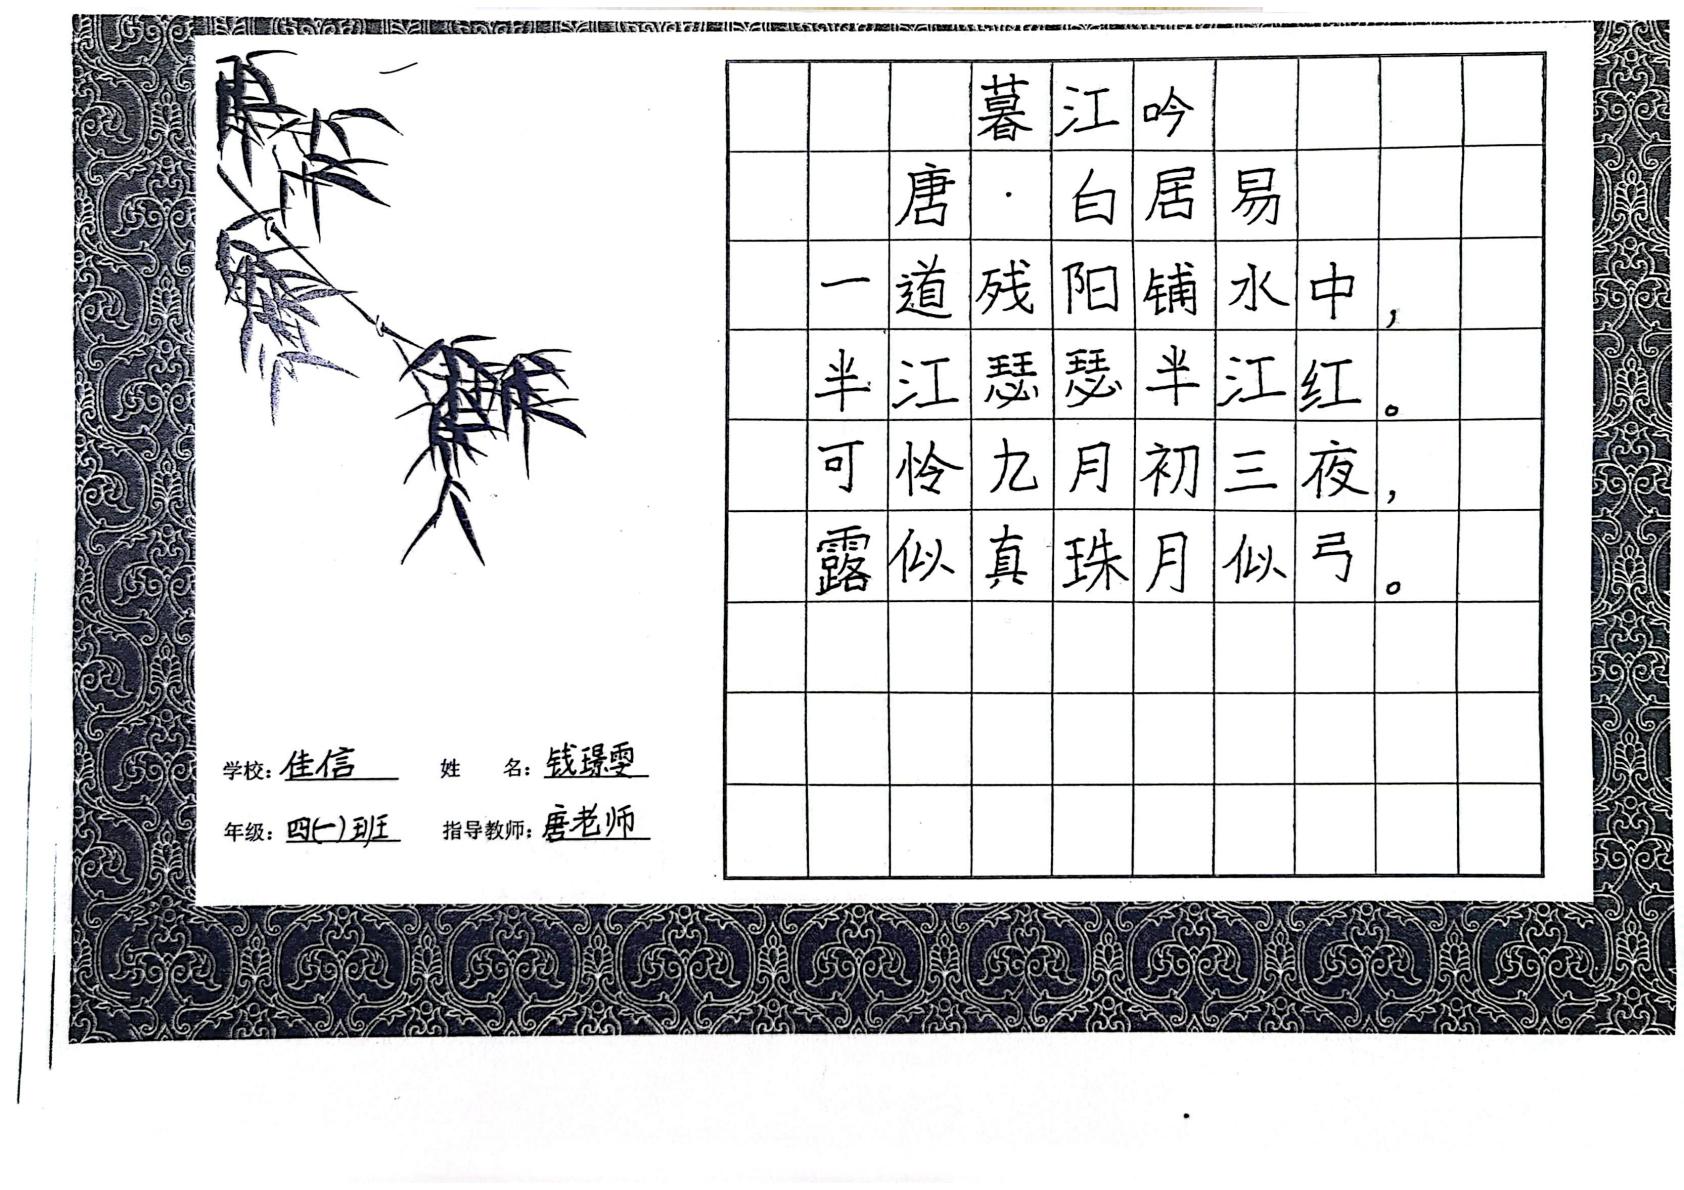 暮江吟
唐·白居易
一道残阳铺水中，
半江瑟瑟半江红。
可怜九月初三夜，
露似真珠月似弓。
学校：佳信 姓 名：钱璟雯
年级：四(一)班 指导教师：唐老师